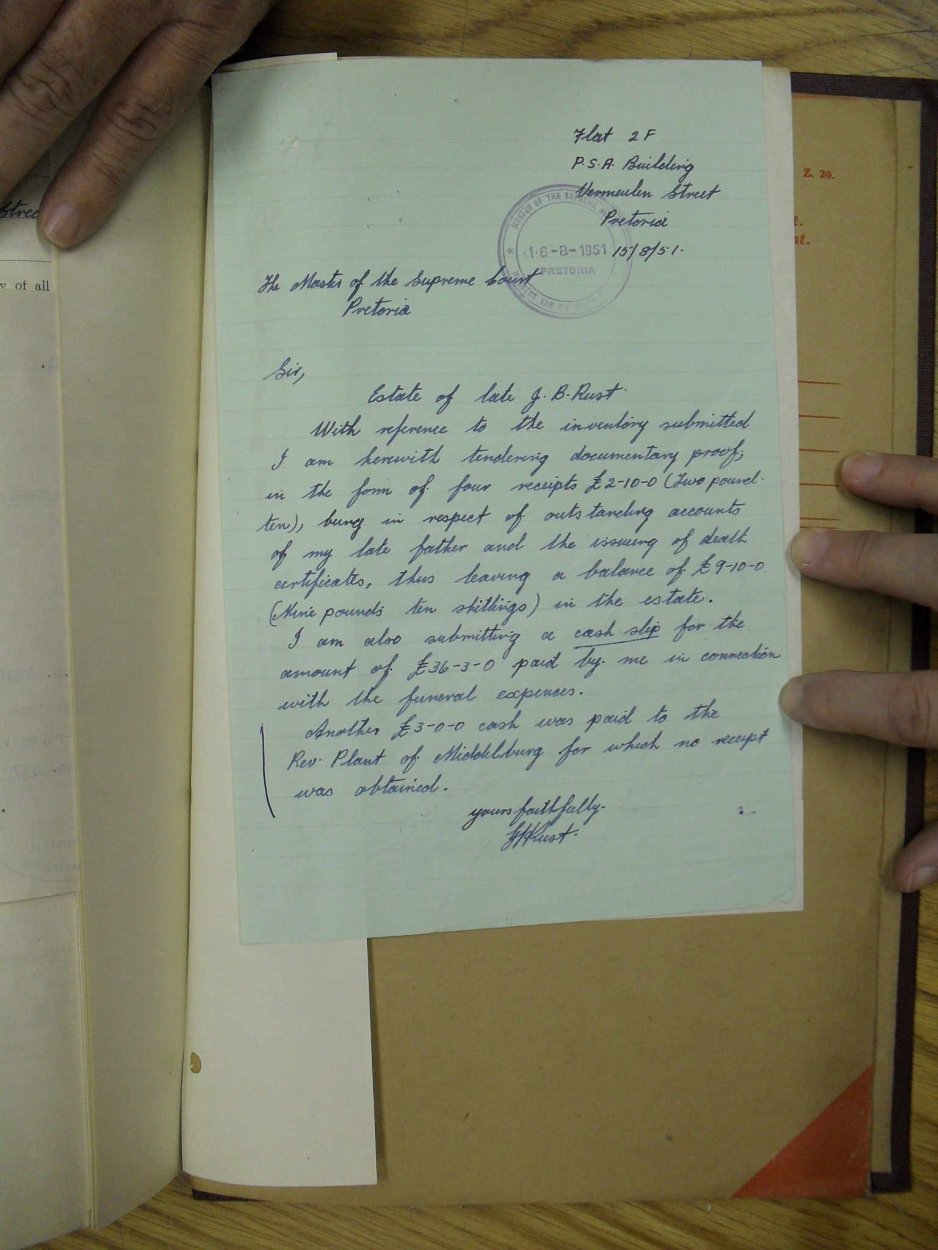 Flat 2F
P.S.A. Building
Vermeulen Street
Pretoria
15/8/51.
MASTER OF THE SUPREME
16-8-1951
PRETORIA
The Master of the Supreme Court
Pretoria
Sir,
Estate of late J. B. Rust.
With reference to the inventory submitted
I am herewith tendering documentary proof,
in the form of four receipts £2-10-0 (Two pound.
ten), being in respect of outstanding accounts
of my late father and the issuing of death
certificates, thus leaving a balance of £9-10-0
(Nine pounds ten shillings) in the estate.
I am also submitting a cash slip for the
amount of £36-3-0 paid by me in connection
with the funeral expences.
Another £3-0-0 cash was paid to the
Rev. Plant of Middelburg for which no receipt
was obtained.
yours faithfully.
Rust.
Z. 20.
y of all